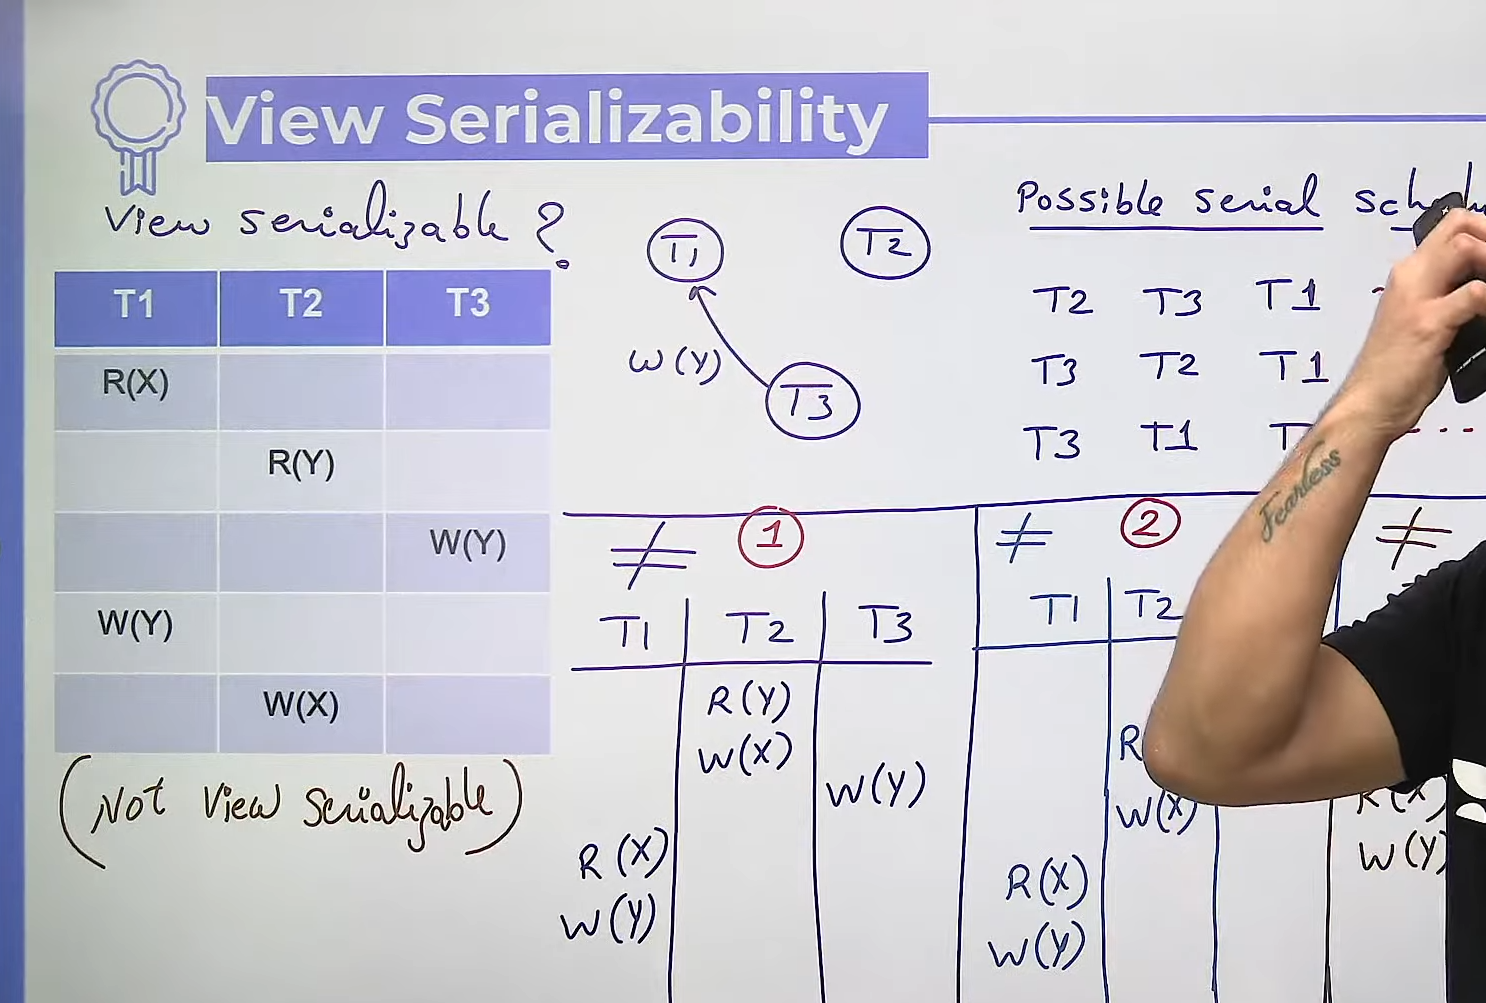 View Serializability
View serializable ?
T1 T2 T3
R(X)
R(Y)
W(Y)
W(Y)
W(X)
(Not View Serializable)
T1 T2
W(Y)
T3
Possible serial
T2 T3 T1
T3 T2 T1
T3 T1
≠ 1
T1 T2 T3
R(Y)
W(X)
W(Y)
R(X)
W(Y)
≠ 2
T1 T2
R
W(X)
R(X)
W(Y)
≠
R(X)
W(Y)
Fearless